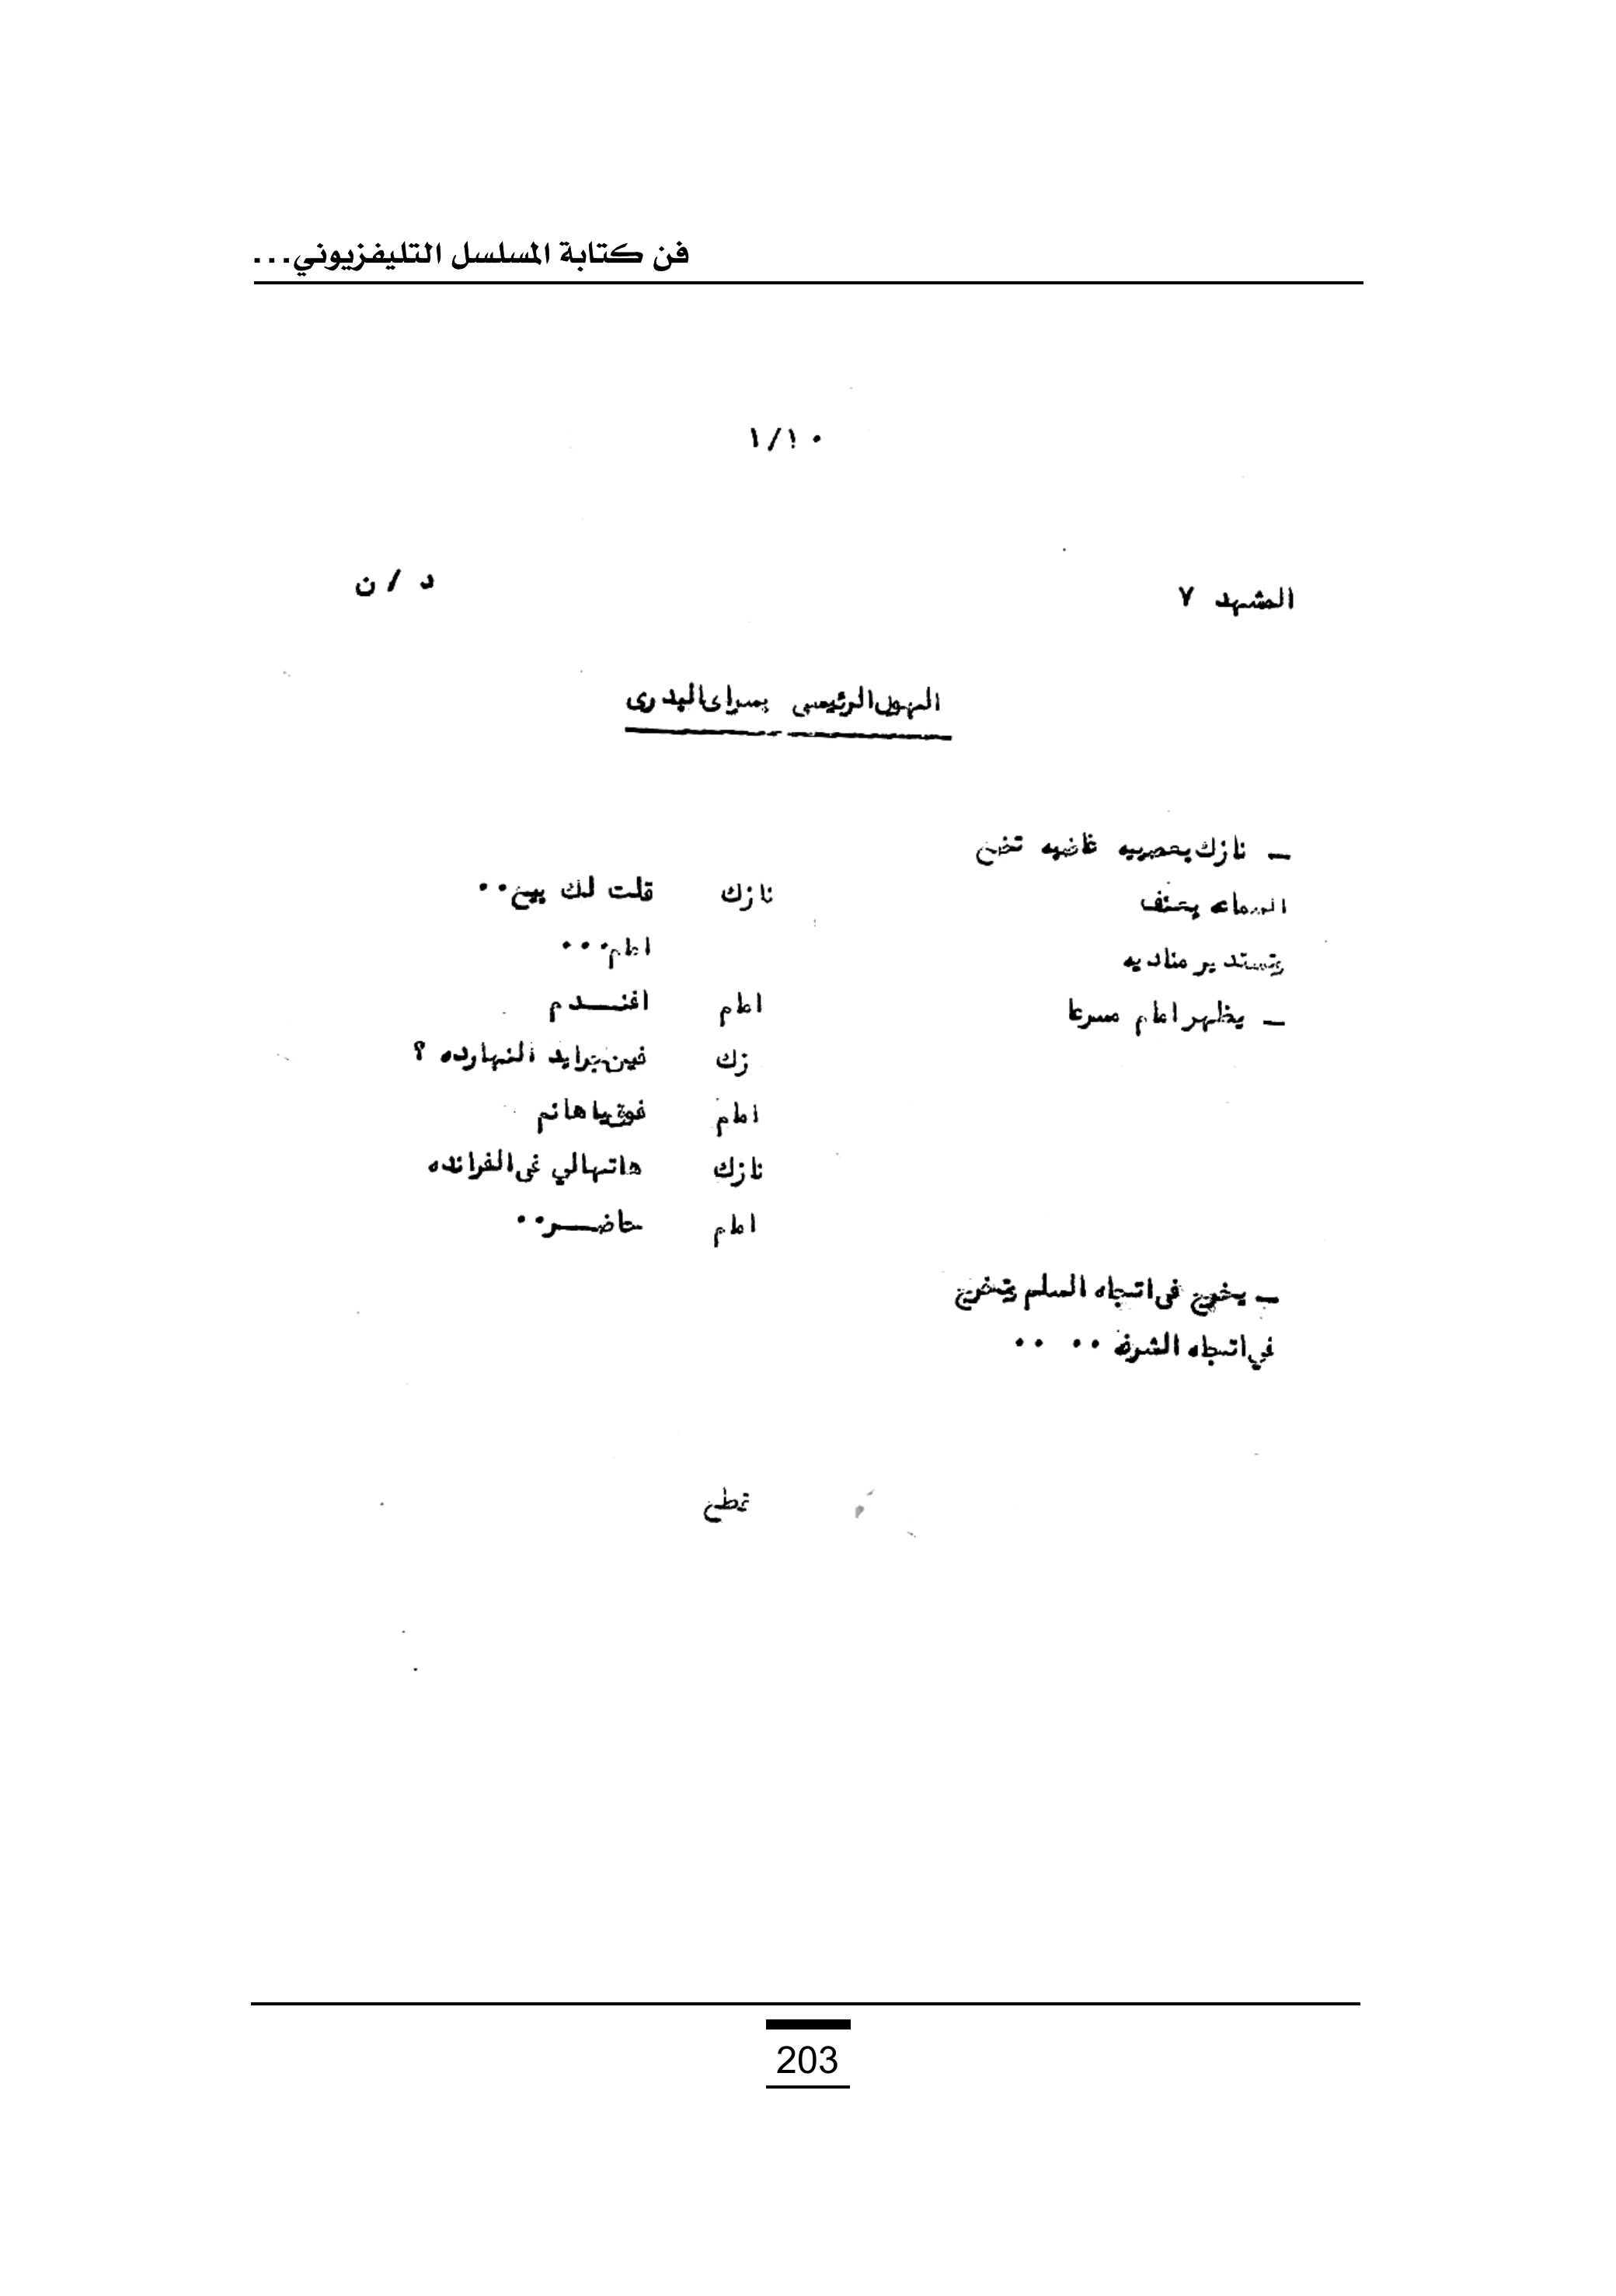 فن كتابة المسلسل التليفزيوني...
١/١٠
المشهد ٧
د / ن
الهول الرئيسى بسراى البدرى
ـ نازك بعصبيه غاضبه تضع
السماعه بعنف
وتستدير مناديه
ـ يظهر امام مسرعا
نازك قلت لك بيع..
امام...
امام افنـــدم
زك فين جرايد النهارده ؟
امام فوق يا هانم
نازك هاتهالي فى الفرانده
امام حاضـــر..
ـ يخرج فى اتجاه السلم وتخرج
في اتجاه الشرفه .. ..
قطع
203